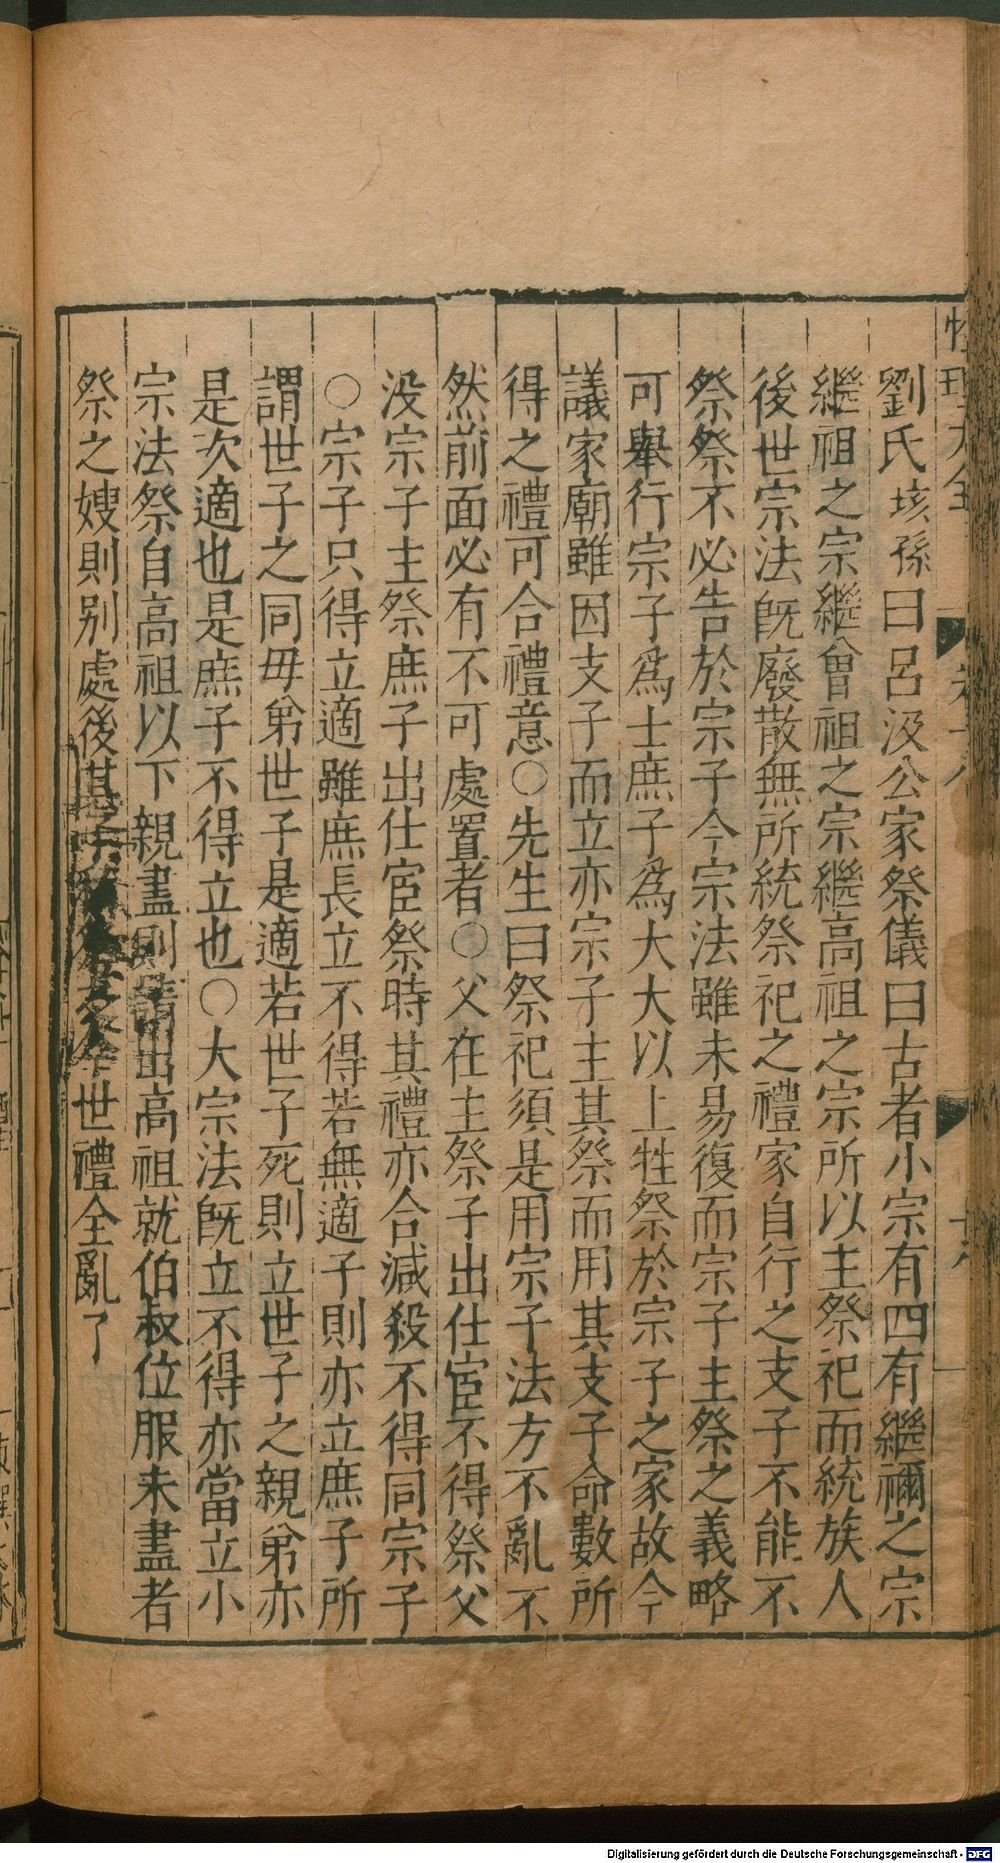 劉氏垓孫曰呂汲公家祭儀曰古者小宗有四有繼禰之宗
繼祖之宗繼曾祖之宗繼高祖之宗所以主祭祀而統族人
後世宗法旣廢散無所統祭祀之禮家自行之支子不能不
祭祭不必告於宗子今宗法雖未易復而宗子主祭之義略
可舉行宗子爲士庶子爲大大以上牲祭於宗子之家故今
議家廟雖因支子而立亦宗子主其祭而用其支子命數所
得之禮可合禮意○先生曰祭祀須是用宗子法方不亂不
然前面必有不可處置者○父在主祭子出仕宦不得祭父
没宗子主祭庶子出仕宦祭時其禮亦合減殺不得同宗子
○宗子只得立適雖庶長立不得若無適子則亦立庶子所
謂世子之同毋弟世子是適若世子死則立世子之親弟亦
是次適也是庶子不得立也○大宗法旣立不得亦當立小
宗法祭自高祖以下親盡則請出高祖就伯叔位服未盡者
祭之嫂則别處後其子世禮全亂了
Digitalisierung gefördert durch die Deutsche Forschungsgemeinschaft - DFG